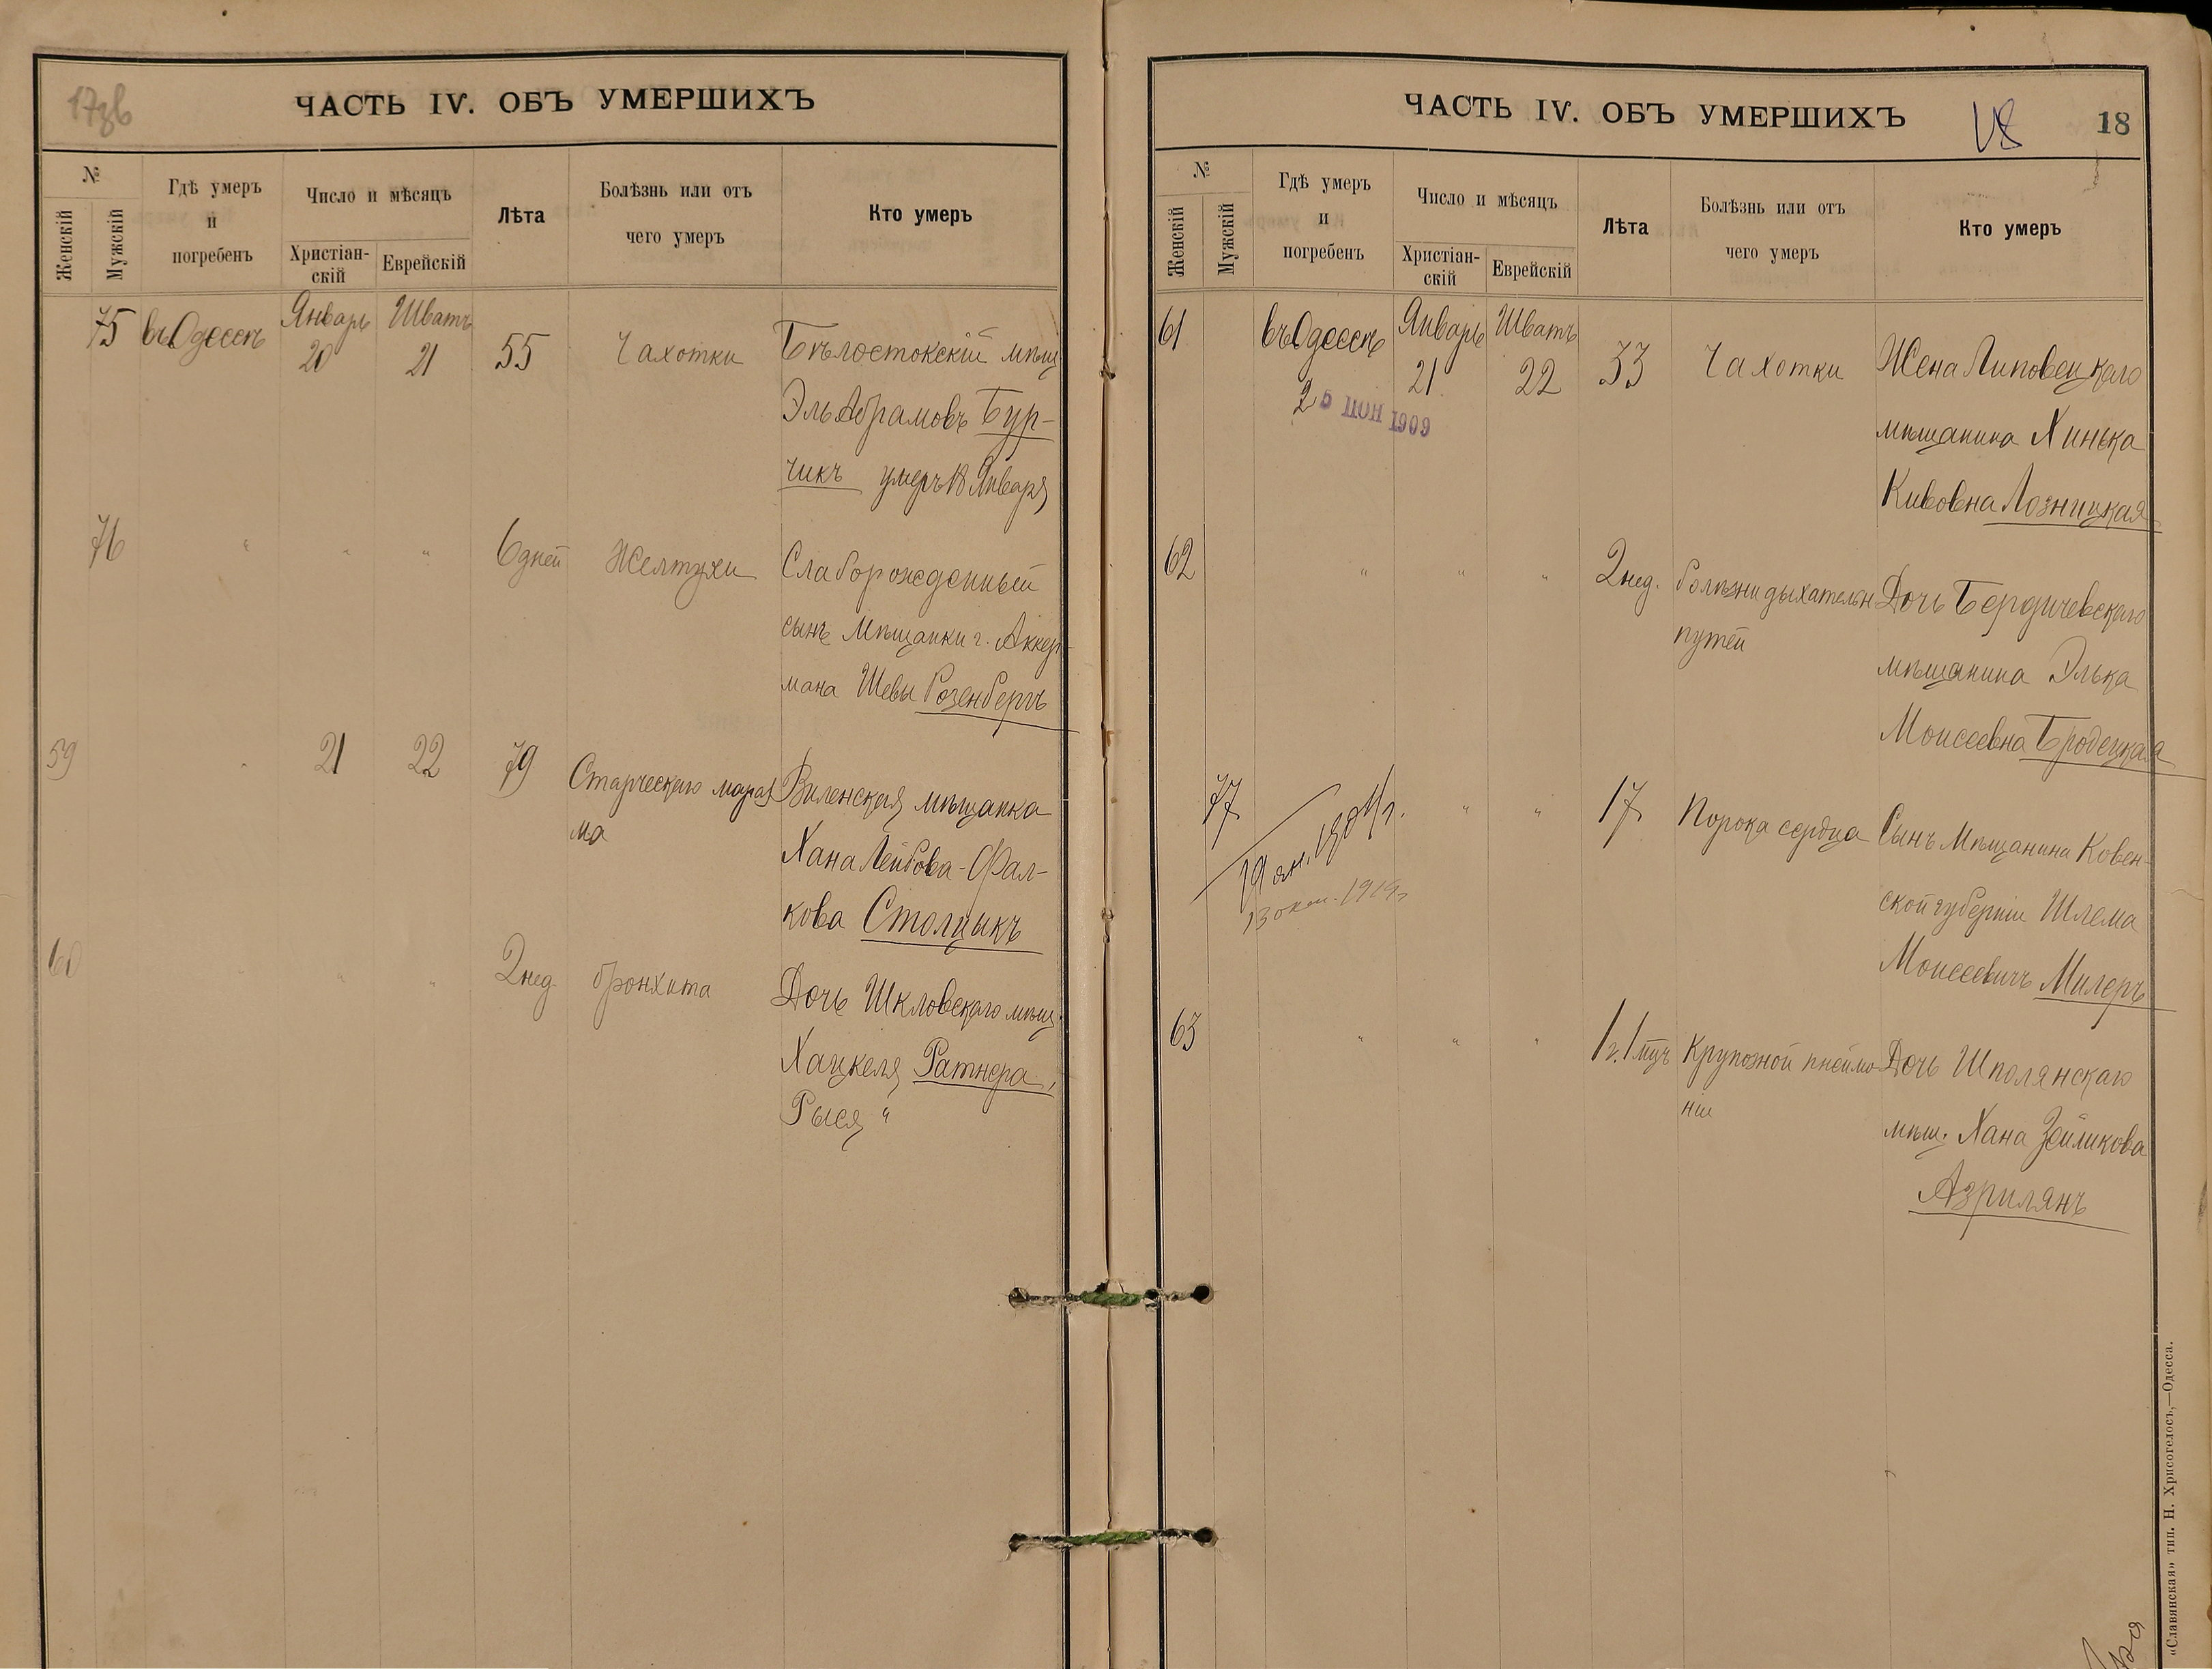 17зв
ЧАСТЬ IV. ОБЪ УМЕРШИХЪ
№
Женскій
Мужскій
Гдѣ умеръ
и
погребенъ
Число и мѣсяцъ
Христіан-
скій
Еврейскій
Лѣта
Болѣзнь или отъ
чего умеръ
Кто умеръ
75 въ Одессѣ Январь 20 Шватъ 21 55 Чахотки Бѣлостокскій мѣщ.
Эль Абрамовъ Бур-
чикъ умеръ 18 Января
76 " " " 6 дней Желтухи Слаборожденный
сынъ Мѣщанки г. Аккер-
мана Шевы Розенбергъ
59 " 21 22 79 Старческаго мараз Виленская мѣщанка
ма
Хана Лейбова-Фал-
кова Столцыкъ
60 " " " 2 нед. бронхита Дочь Шкловскаго мѣщ.
Хацкеля Ратнера,
Рыся "
ЧАСТЬ IV. ОБЪ УМЕРШИХЪ
18
18
№
Женскій
Мужскій
Гдѣ умеръ
и
погребенъ
Число и мѣсяцъ
Христіан-
скій
Еврейскій
Лѣта
Болѣзнь или отъ
чего умеръ
Кто умеръ
61 въ Одессѣ Январь 21 Шватъ 22 33 Чахотки Жена Липовецкаго
2 5 ІЮН 1909
мѣщанина Хинька
Кивовна Лозницкая
62 " " " 2 нед. болѣзни дыхательн Дочь Бердичевскаго
путей
мѣщанина Элька
Моисеевна Бродецкая
77 " " 17 Порока сердца Сынъ Мѣщанина Ковен-
19 ян.
13 окт. 1919 г
ской губерніи Шлема
Моисеевичъ Милеръ
63 " " " 1 г. 1 мцъ Крупозной пнеймо Дочь Шполянскаго
ніи
мѣщ. Хана Зейликова
Азрилянъ
«Славянская» тип. Н. Хрисогелосъ,—Одесса.